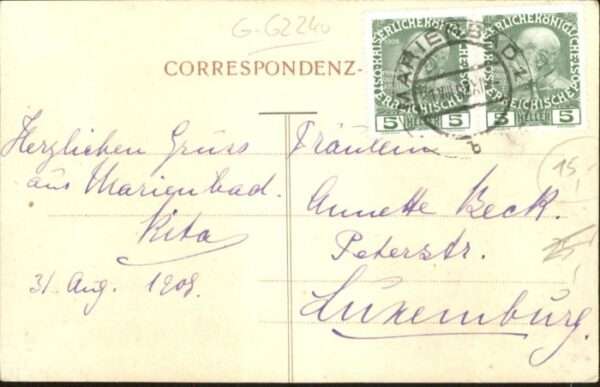 G-G2240
CORRESPONDENZ-
KAISERLICHE KÖNIGLICHE
ÖSTERREICHISCHE
5 HELLER 5
KAISERLICHE KÖNIGLICHE
ÖSTERREICHISCHE
5 HELLER 5
MARIENBAD 1
Herzlichen Gruss
aus Marienbad.
Rita
31. Aug. 1908.
Fräulein
Annette Beck.
Peterstr.
Luxemburg.
15